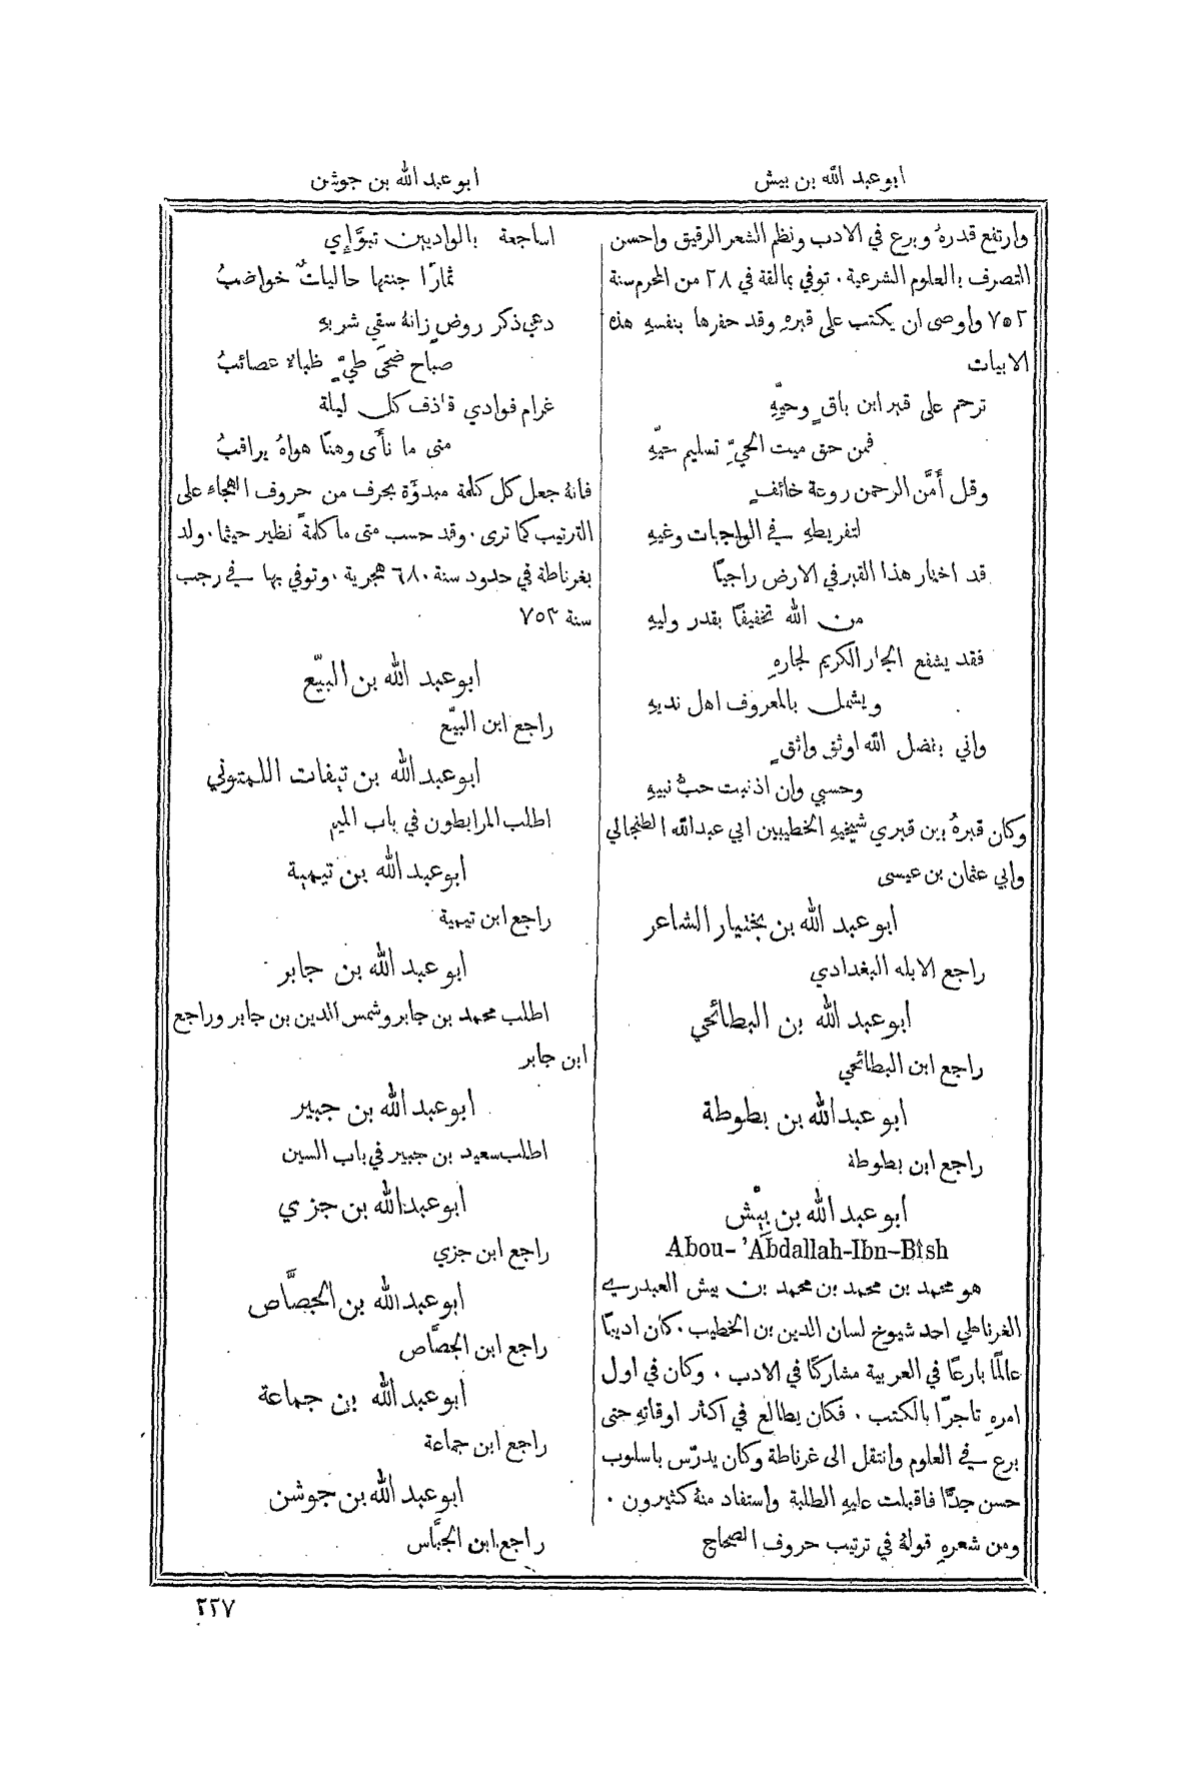 ابو عبد الله بن بيش
ابو عبد الله بن جوشن
وارتفع قدرهُ وبرع في الادب ونظم الشعر الرقيق واحسن
التصرف بالعلوم الشرعية . توفي بمالقة في ٢٨ من المحرم سنة
٧٥٢ واوصى ان يكتب على قبرهِ وقد حفرها بنفسهِ هذه
الابيات
ترحم على قبر ابن باقٍ وحيّهِ
فمن حق ميت الحيِّ تسليم حيّهِ
وقل أَمَّن الرحمن روعة خائفٍ
لتفريطهِ في الواجبات وغيهِ
قد اختار هذا القبر في الارض راجيًا
من الله تخفيفًا بقدر وليهِ
فقد يشفع الجار الكريم لجارهِ
ويشمل بالمعروف اهل نديهِ
واني بفضل الله اوثق واثقٍ
وحسبي وان اذنبت حبُّ نبيهِ
وكان قبرهُ بين قبري شيخيهِ الخطيبين ابي عبدالله الطنجالي
وابي عثمان بن عيسى
ابو عبد الله بن بختيار الشاعر
راجع الابله البغدادي
ابو عبد الله بن البطائحي
راجع ابن البطائحي
ابو عبدالله بن بطوطة
راجع ابن بطوطة
ابو عبد الله بن بيْش
Abou-'Abdallah-Ibn-Bîsh
هو محمد بن محمد بن محمد بن بيش العبدري
الغرناطي احد شيوخ لسان الدين بن الخطيب . كان اديبًا
عالمًا بارعًا في العربية مشاركًا في الادب . وكان في اول
امرهِ تاجرًا بالكتب . فكان يطالع في اكثر اوقاتهِ حتى
برع في العلوم وانتقل الى غرناطة وكان يدرّس باسلوب
حسن جدًّا فاقبلت عليهِ الطلبة واستفاد منهُ كثيرون .
ومن شعرهِ قولهُ في ترتيب حروف الصحاح
اساجعة بالواديين تبوَّإي
ثمارًا جنتها حالياتٌ خواضبُ
دعي ذكر روضٍ زانهُ سقي شربهِ
صباح ضحًى طيٍّ ظباء عصائبُ
غرام فوادي قاذف كل ليلة
متى ما نأَى وهنًا هواهُ يراقبُ
فانهُ جعل كل كلمة مبدوَّة بحرف من حروف الهجاء على
الترتيب كما ترى . وقد حسب متى ما كلمةً نظير حيثما . ولد
بغرناطة في حدود سنة ٦٨٠ هجرية . وتوفي بها في رجب
سنة ٧٥٣
ابو عبد الله بن البيّع
راجع ابن البيّع
ابو عبد الله بن تيفات اللمتوني
اطلب المرابطون في باب الميم
ابو عبد الله بن تيمية
راجع ابن تيمية
ابو عبد الله بن جابر
اطلب محمد بن جابر وشمس الدين بن جابر وراجع
ابن جابر
ابو عبد الله بن جبير
اطلب سعيد بن جبير في باب السين
ابو عبدالله بن جزي
راجع ابن جزي
ابو عبد الله بن الجصَّاص
راجع ابن الجصَّاص
ابو عبد الله بن جماعة
راجع ابن جماعة
ابو عبد الله بن جوشن
راجع ابن الجبَّاس
٢٢٧